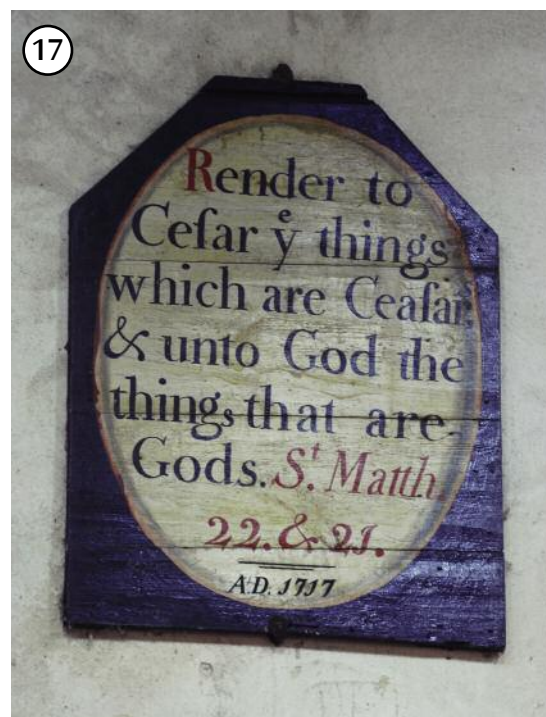 17
Render to
Ceſar yͤ things
which are Ceaſar,
& unto God the
things that are
Gods. Sᵗ. Matth.
22. & 21.
A.D. 1717